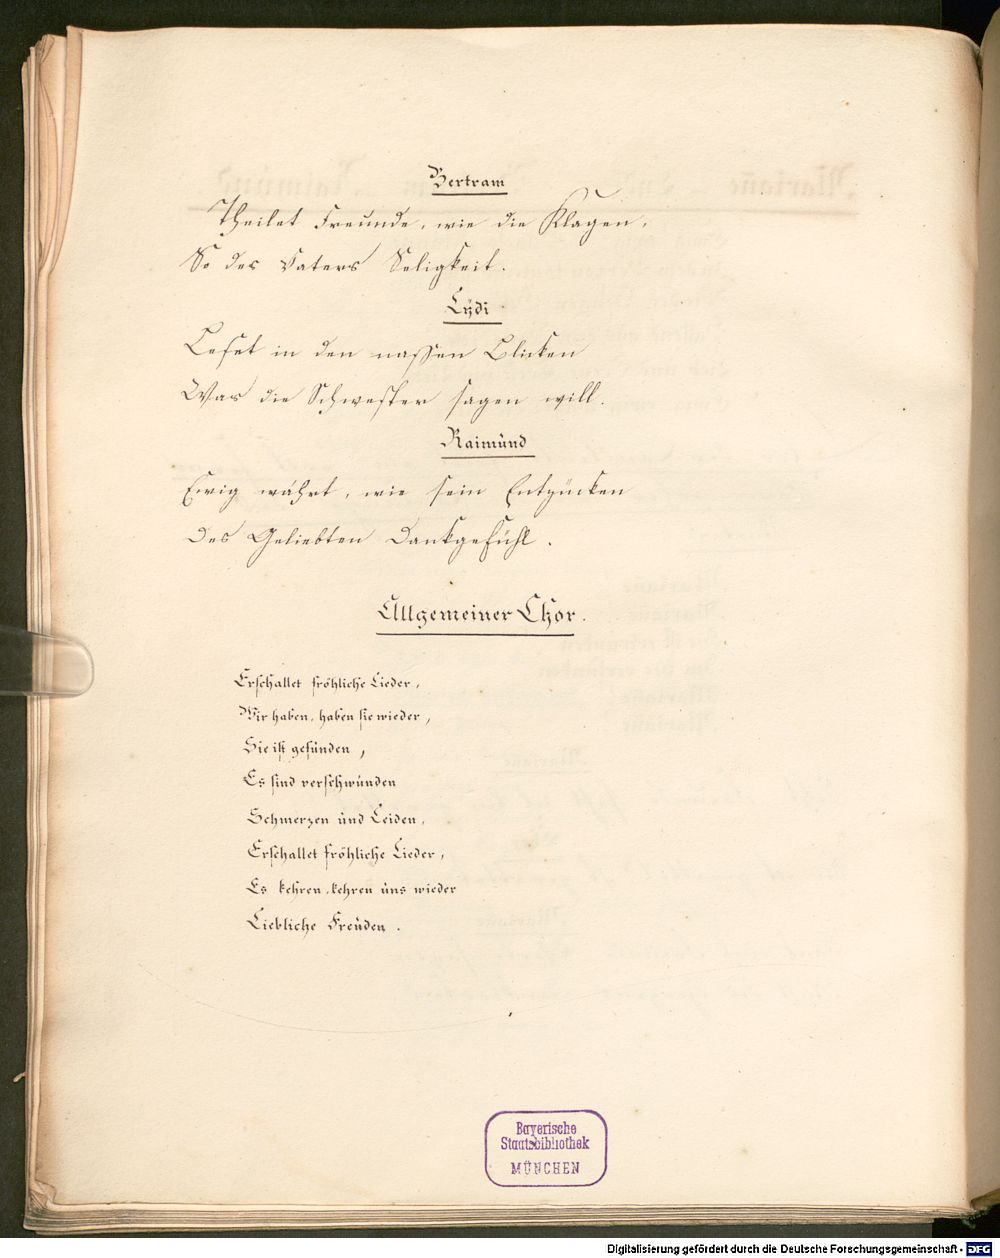 Bertram
Theilet Freunde, wie die Klagen,
So des Vaters Seligkeit.
Lÿdi
Leset in den nassen Blicken
Was die Schwester sagen will.
Raimund
Ewig währt, wie sein Entzücken
Des Geliebten Dankgefühl.
Allgemeiner Chor.
Erschallet fröhliche Lieder,
Wir haben, haben sie wieder,
Sie ist gefunden,
Es sind verschwunden
Schmerzen und Leiden,
Erschallet fröhliche Lieder,
Es kehren, kehren uns wieder
Liebliche Freuden.
Bayerische
Staatsbibliothek
MÜNCHEN
Digitalisierung gefördert durch die Deutsche Forschungsgemeinschaft - DFG